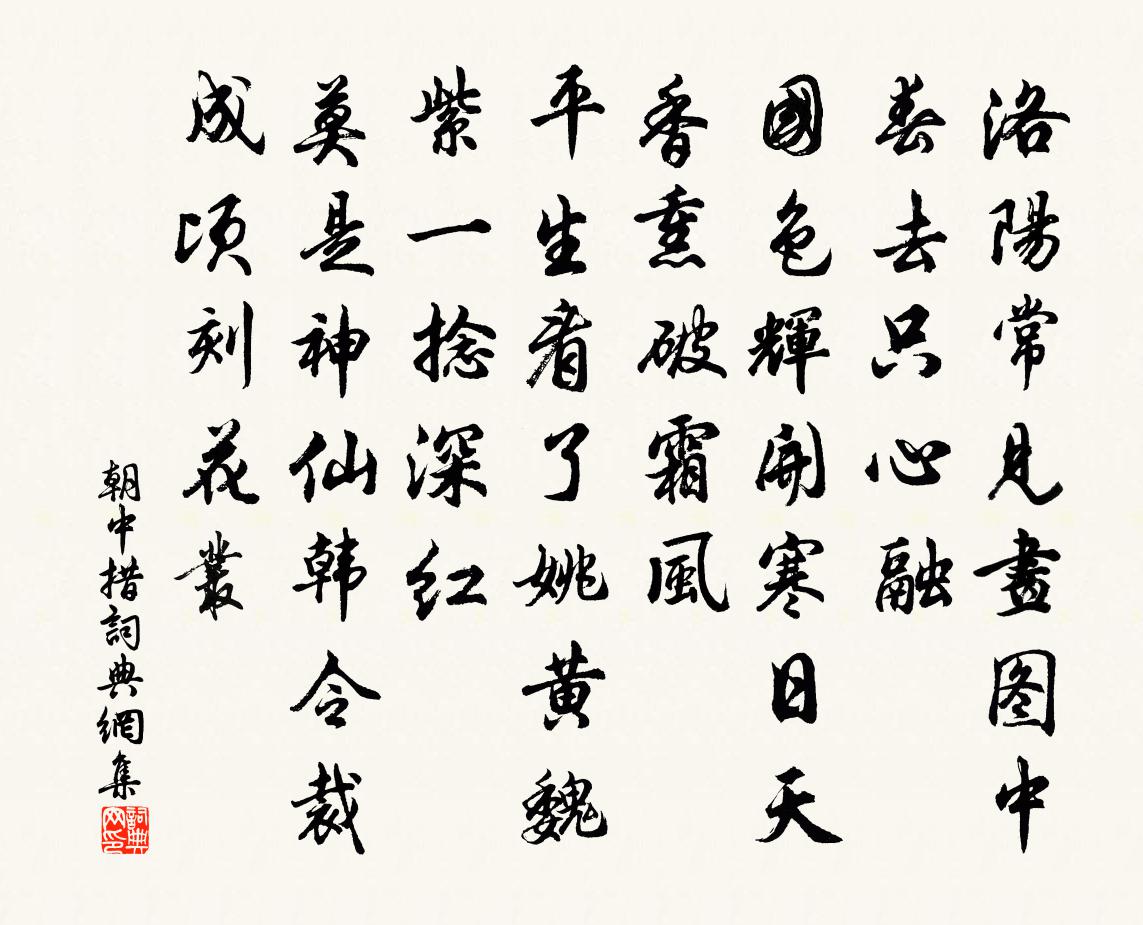 洛陽常見畫图中
春去只心融
國色輝開寒日天
香熏破霜風
平生看了姚黄魏
紫一捻深红
莫是神仙韩令裁
成頃刻花叢
朝中措詞典網集
詞典网印